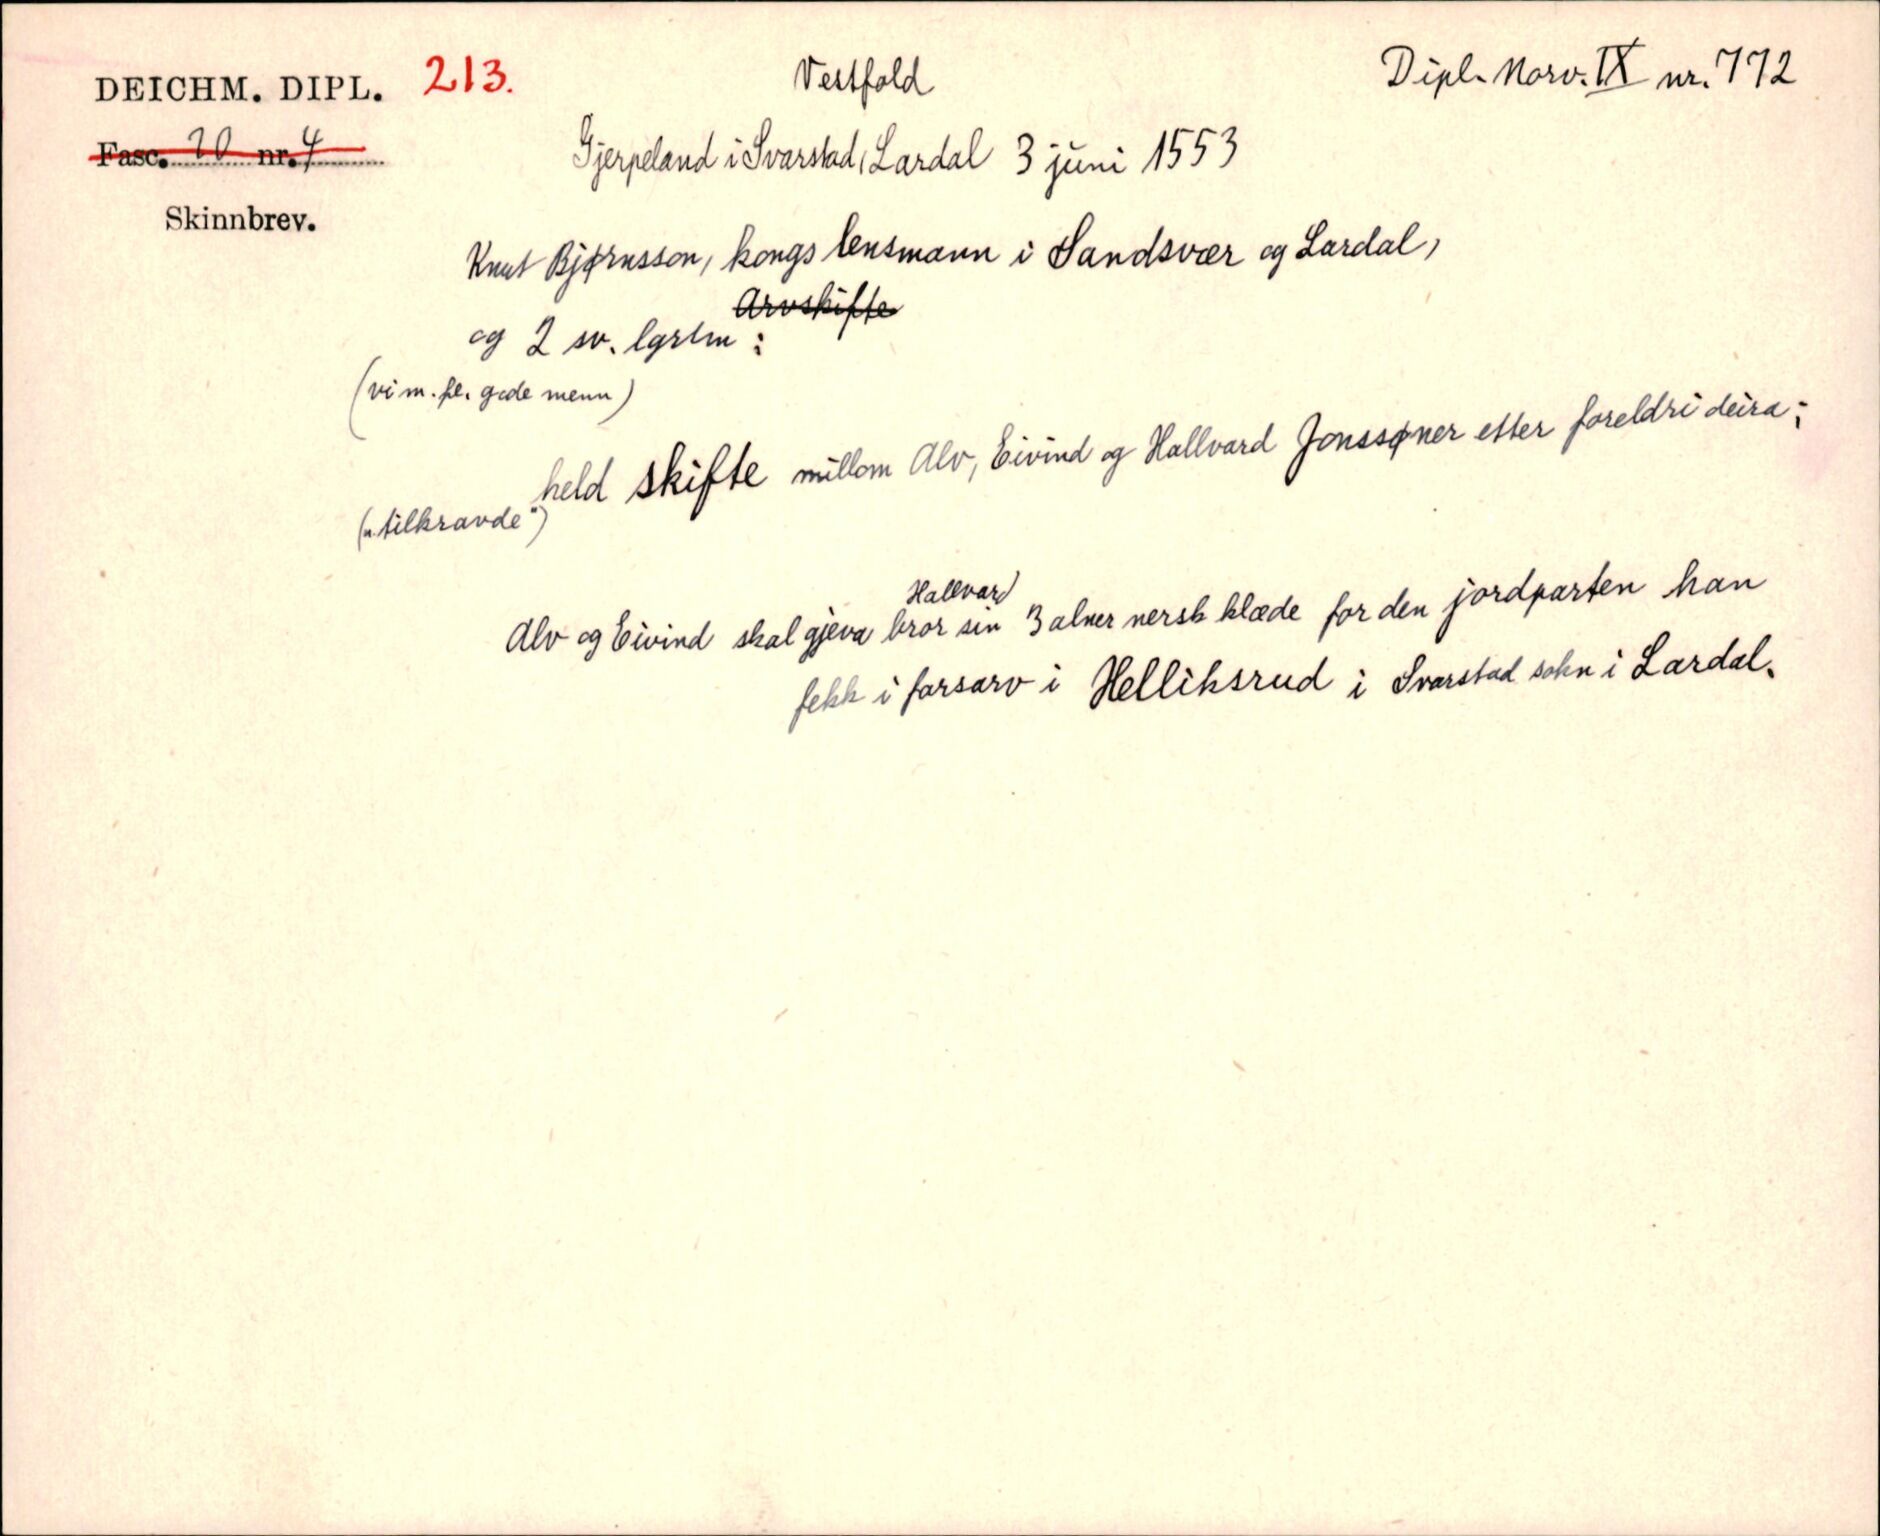 DEICHM. DIPL. 213. Vestfold Dipl. Norv. IX nr. 772
Fasc. 20 nr. 4
Gjerpeland i Svarstad, Lardal 3 juni 1553
Skinnbrev.
Knut Bjørnsson, kongs lensmann i Sandsvær og Lardal,
Arvskifte
og 2 sv. lgrtm :
(vi m. fl. gode menn)
held skifte millom Alv, Eivind og Hallvard Jonssøner etter foreldri deira;
("tilkravde")
Hallvard
Alv og Eivind skal gjeva bror sin 3 alner nersk klæde for den jordparten han
fekk i farsarv i Helliksrud i Svarstad sokn i Lardal.